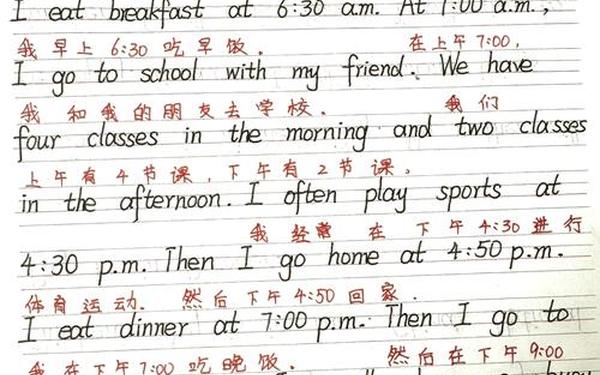 I eat breakfast at 6:30 am. At 7:00 a.m.,
我早上6:30吃早饭. 在上午7:00,
I go to school with my friend. We have
我和我的朋友去学校. 我们
four classes in the morning and two classes
上午有4节课,下午有2节课.
in the afternoon. I often play sports at
我经常在下午4:30进行
4:30 p.m. Then I go home at 4:50 p.m.
体育运动. 然后下午4:50回家.
I eat dinner at 7:00 p.m. Then I go to
我在下午7:00吃晚饭. 然后在下午9:00